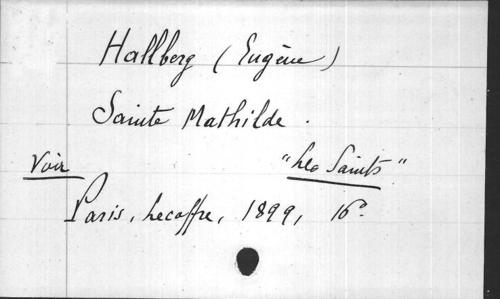 Hallberg (Eugène)
Sainte Mathilde.
Voir "Les Saints"
Paris, Lecoffre, 1899, 16°.